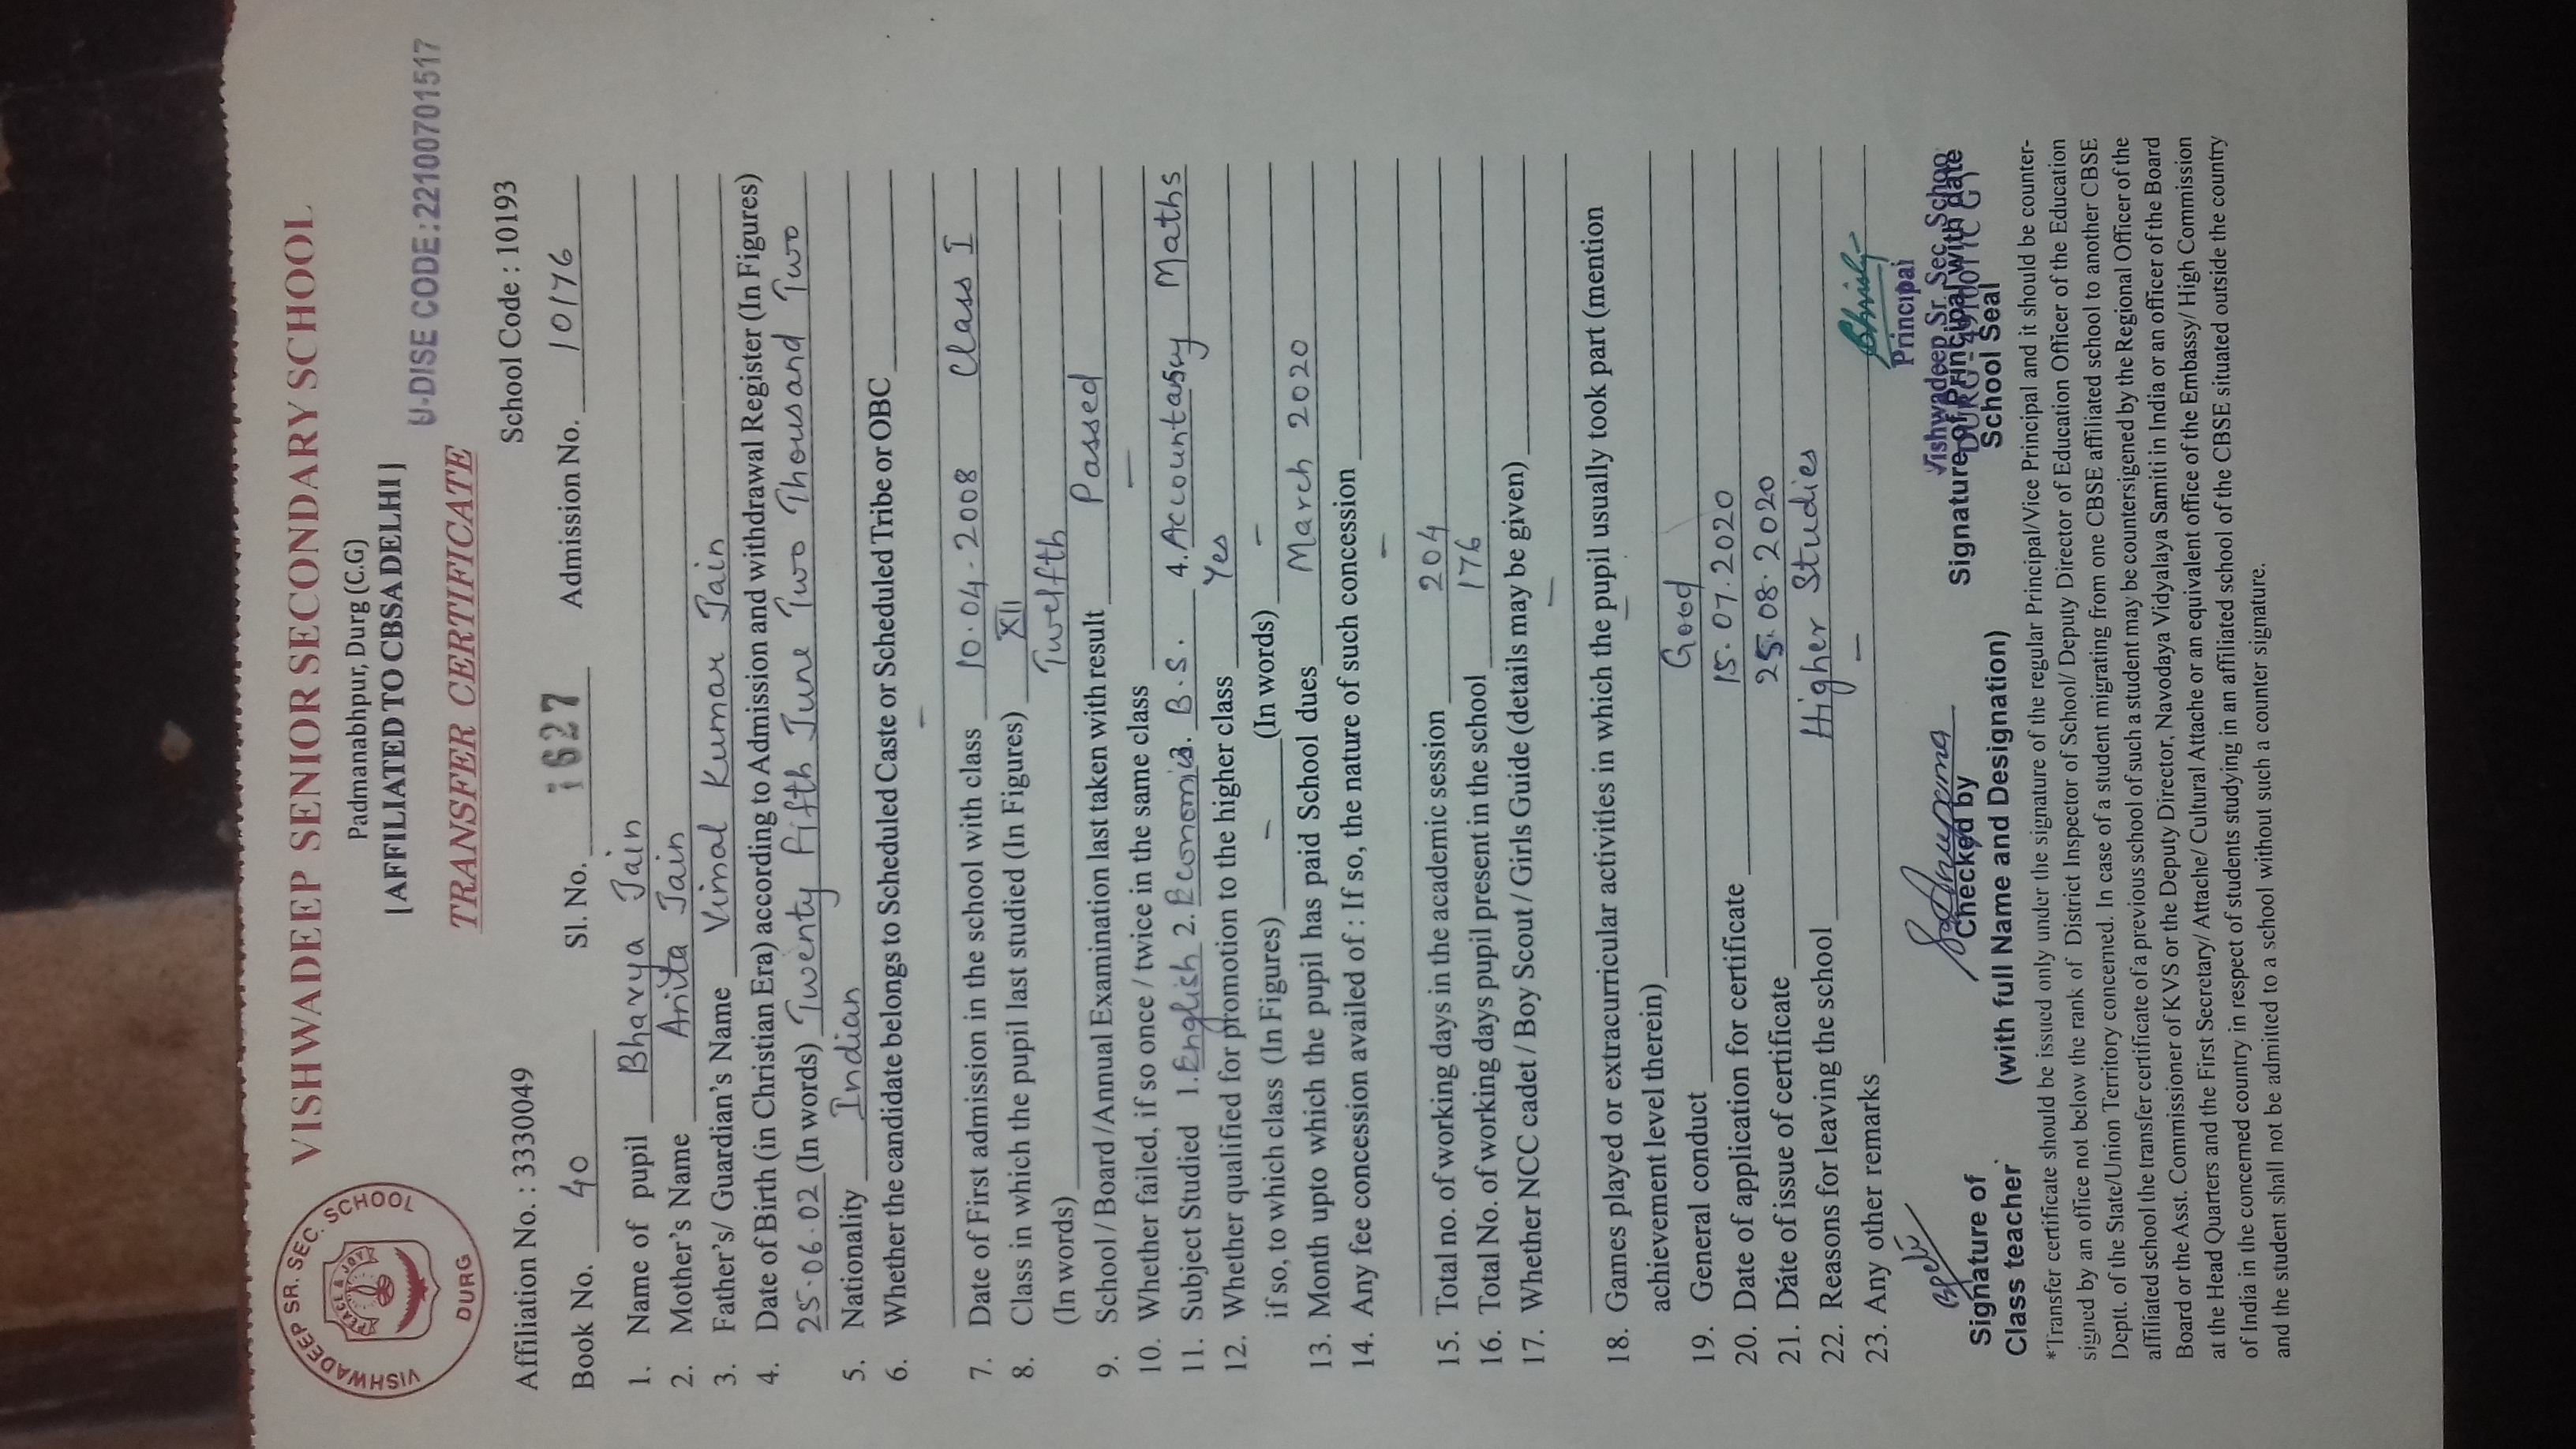 VISHWADEEP SR. SEC. SCHOOL
PEACE & JOY
DURG
VISHWADEEP SENIOR SECONDARY SCHOOL
Padmanabhpur, Durg (C.G)
[AFFILIATED TO CBSA DELHI]
U-DISE CODE:22100701517
TRANSFER CERTIFICATE
Affiliation No. : 3330049 School Code : 10193
Book No. 40 Sl. No. 1627 Admission No. 10176
1. Name of pupil Bhavya Jain
2. Mother's Name Anita Jain
3. Father's/ Guardian's Name Vimal Kumar Jain
4. Date of Birth (in Christian Era) according to Admission and withdrawal Register (In Figures)
25.06.02 (In words) Twenty Fifth June Two Thousand Two
5. Nationality Indian
6. Whether the candidate belongs to Scheduled Caste or Scheduled Tribe or OBC
–
7. Date of First admission in the school with class 10.04.2008 Class I
8. Class in which the pupil last studied (In Figures) XII
(In words) Twelfth
9. School / Board /Annual Examination last taken with result Passed
10. Whether failed, if so once / twice in the same class –
11. Subject Studied 1. English 2. Economics. B.S. 4. Accountancy Maths
12. Whether qualified for promotion to the higher class Yes
if so, to which class (In Figures) – (In words) –
13. Month upto which the pupil has paid School dues March 2020
14. Any fee concession availed of : If so, the nature of such concession
–
15. Total no. of working days in the academic session 204
16. Total No. of working days pupil present in the school 176
17. Whether NCC cadet / Boy Scout / Girls Guide (details may be given)
–
18. Games played or extracurricular activities in which the pupil usually took part (mention
achievement level therein) –
19. General conduct Good
20. Date of application for certificate 15.07.2020
21. Date of issue of certificate 25.08.2020
22. Reasons for leaving the school Higher Studies
23. Any other remarks –
Principal
Vishwadeep Sr. Sec. School
Signature of Class teacher
Checked by
(with full Name and Designation)
Signature of Principal with date
School Seal
*Transfer certificate should be issued only under the signature of the regular Principal/Vice Principal and it should be counter-
signed by an office not below the rank of District Inspector of School/ Deputy Director of Education Officer of the Education
Deptt. of the State/Union Territory concerned. In case of a student migrating from one CBSE affiliated school to another CBSE
affiliated school the transfer certificate of a previous school of such a student may be countersigened by the Regional Officer of the
Board or the Asst. Commissioner of KVS or the Deputy Director, Navodaya Vidyalaya Samiti in India or an officer of the Board
at the Head Quarters and the First Secretary/ Attache/ Cultural Attache or an equivalent office of the Embassy/ High Commission
of India in the concerned country in respect of students studying in an affiliated school of the CBSE situated outside the country
and the student shall not be admitted to a school without such a counter signature.